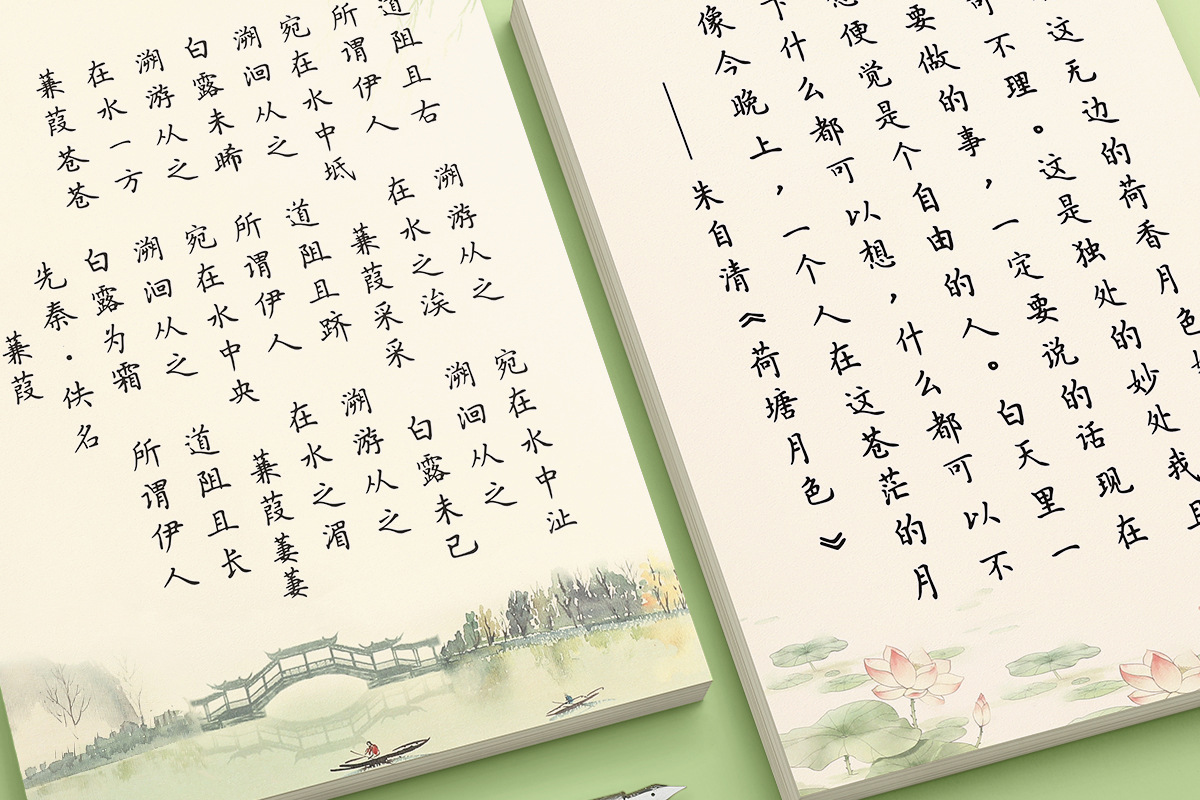 蒹葭
先秦·佚名
蒹葭苍苍 白露为霜 所谓伊人
在水一方 溯洄从之 道阻且长
溯游从之 宛在水中央 蒹葭萋萋
白露未晞 所谓伊人 在水之湄
溯洄从之 道阻且跻 溯游从之
宛在水中坻 蒹葭采采 白露未已
所谓伊人 在水之涘 溯洄从之
道阻且右 溯游从之 宛在水中沚
——朱自清《荷塘月色》
像今晚上，一个人在这苍茫的月
下什么都可以想，什么都可以不
想便觉是个自由的人。白天里一
要做的事，一定要说的话现在
可不理。这是独处的妙处我且
这无边的荷香月色